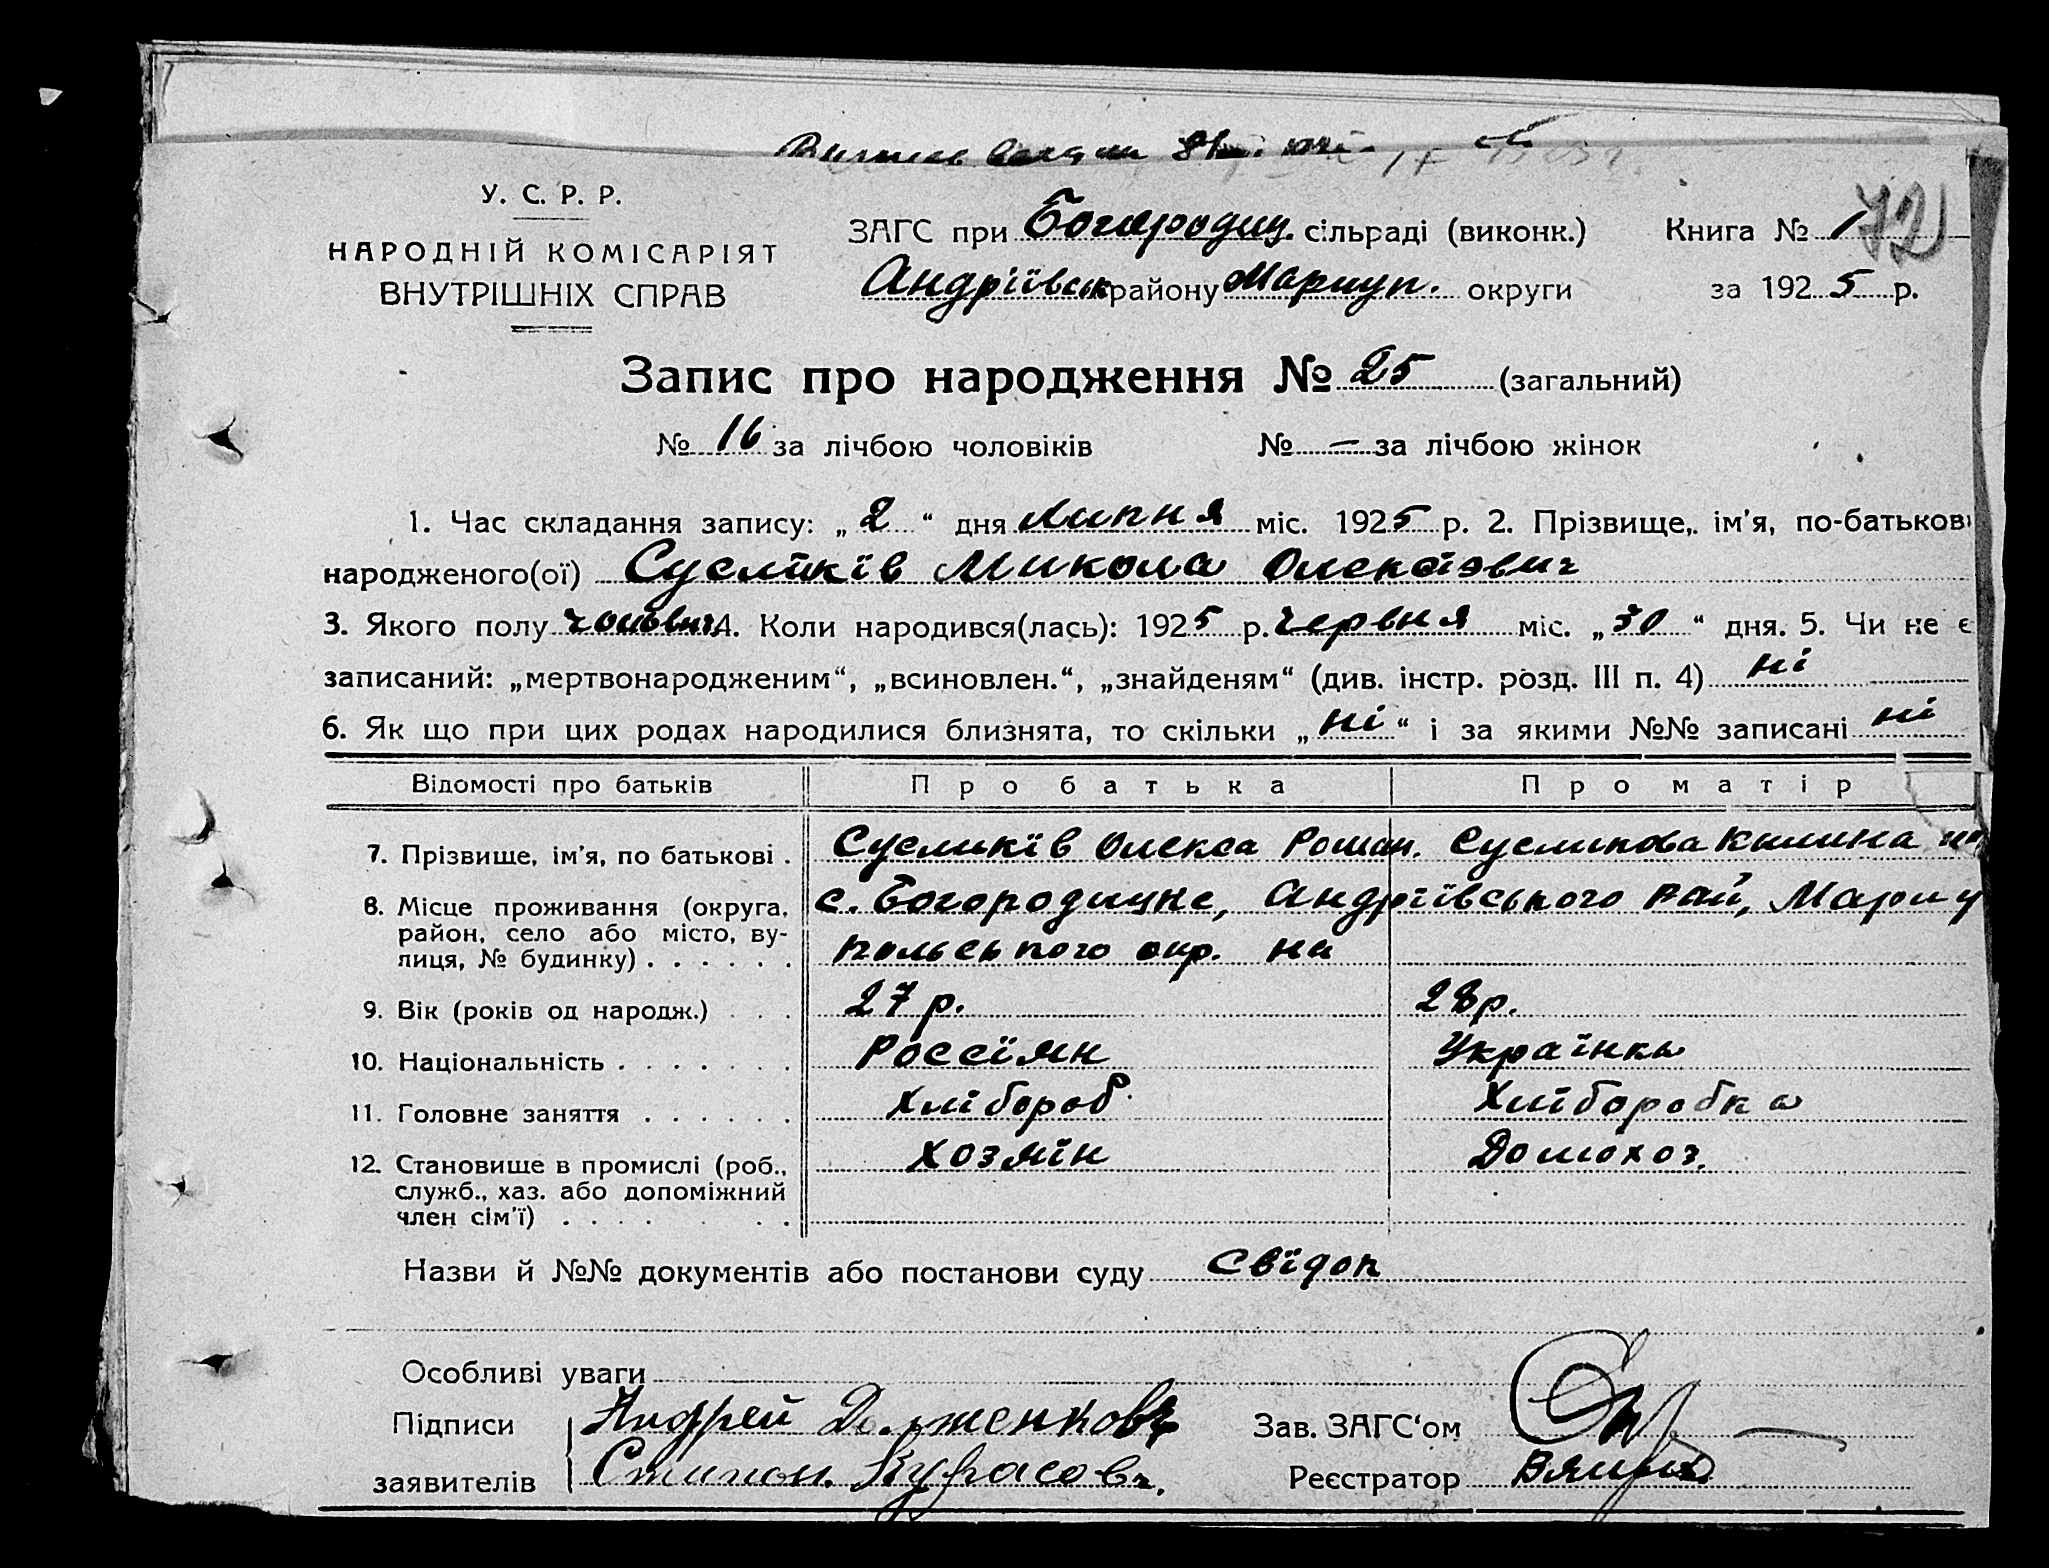 У. С. Р. Р.
НАРОДНІЙ КОМІСАРІЯТ
ВНУТРІШНІХ СПРАВ
ЗАГС при Богородиц. сільраді (виконк.)
Андріївськ району Мариуп. округи
Книга № 1
72
за 1925 р.
Запис про народження № 25 (загальний)
№ 16 за лічбою чоловіків № — за лічбою жінок
1. Час складання запису: „2“ дня липня міс. 1925 р. 2. Прізвище, ім'я, по-батькові
народженого(ої) Сусликїв Микола Олексїэвич
3. Якого полу чоловіч. 4. Коли народився(лась): 1925 р. Червня міс. „30“ дня. 5. Чи не є
записаний: „мертвонародженим“, „всиновлен.“, „знайденям“ (див. інстр. розд. III п. 4) ні
6. Як що при цих родах народилися близнята, то скільки „ні“ і за якими №№ записані ні
Відомості про батьків Про батька Про матір
7. Прізвище, ім'я, по батькові . Сусликїв Олекса Роман. Сусликова Килина
8. Місце проживання (округа, с. Богородицке, Андріївського рай, Мариу
район, село або місто, ву-
лиця, № будинку) . . . . . . польського окр. на
9. Вік (років од народж.) . . . 27 р. 28 р.
10. Національність . . . . . . . Россїян Українка
11. Головне заняття . . . . . . Хлїбороб Хлїборобка
12. Становище в промислі (роб., Хозяїн Домохоз.
служб., хаз. або допоміжний
член сім'ї) . . . . . . .
Назви й №№ документів або постанови суду свїдоп
Особливі уваги
Підписи Андрей Долженковъ Зав. ЗАГС‘ом
заявителів Курасовъ. Реєстратор